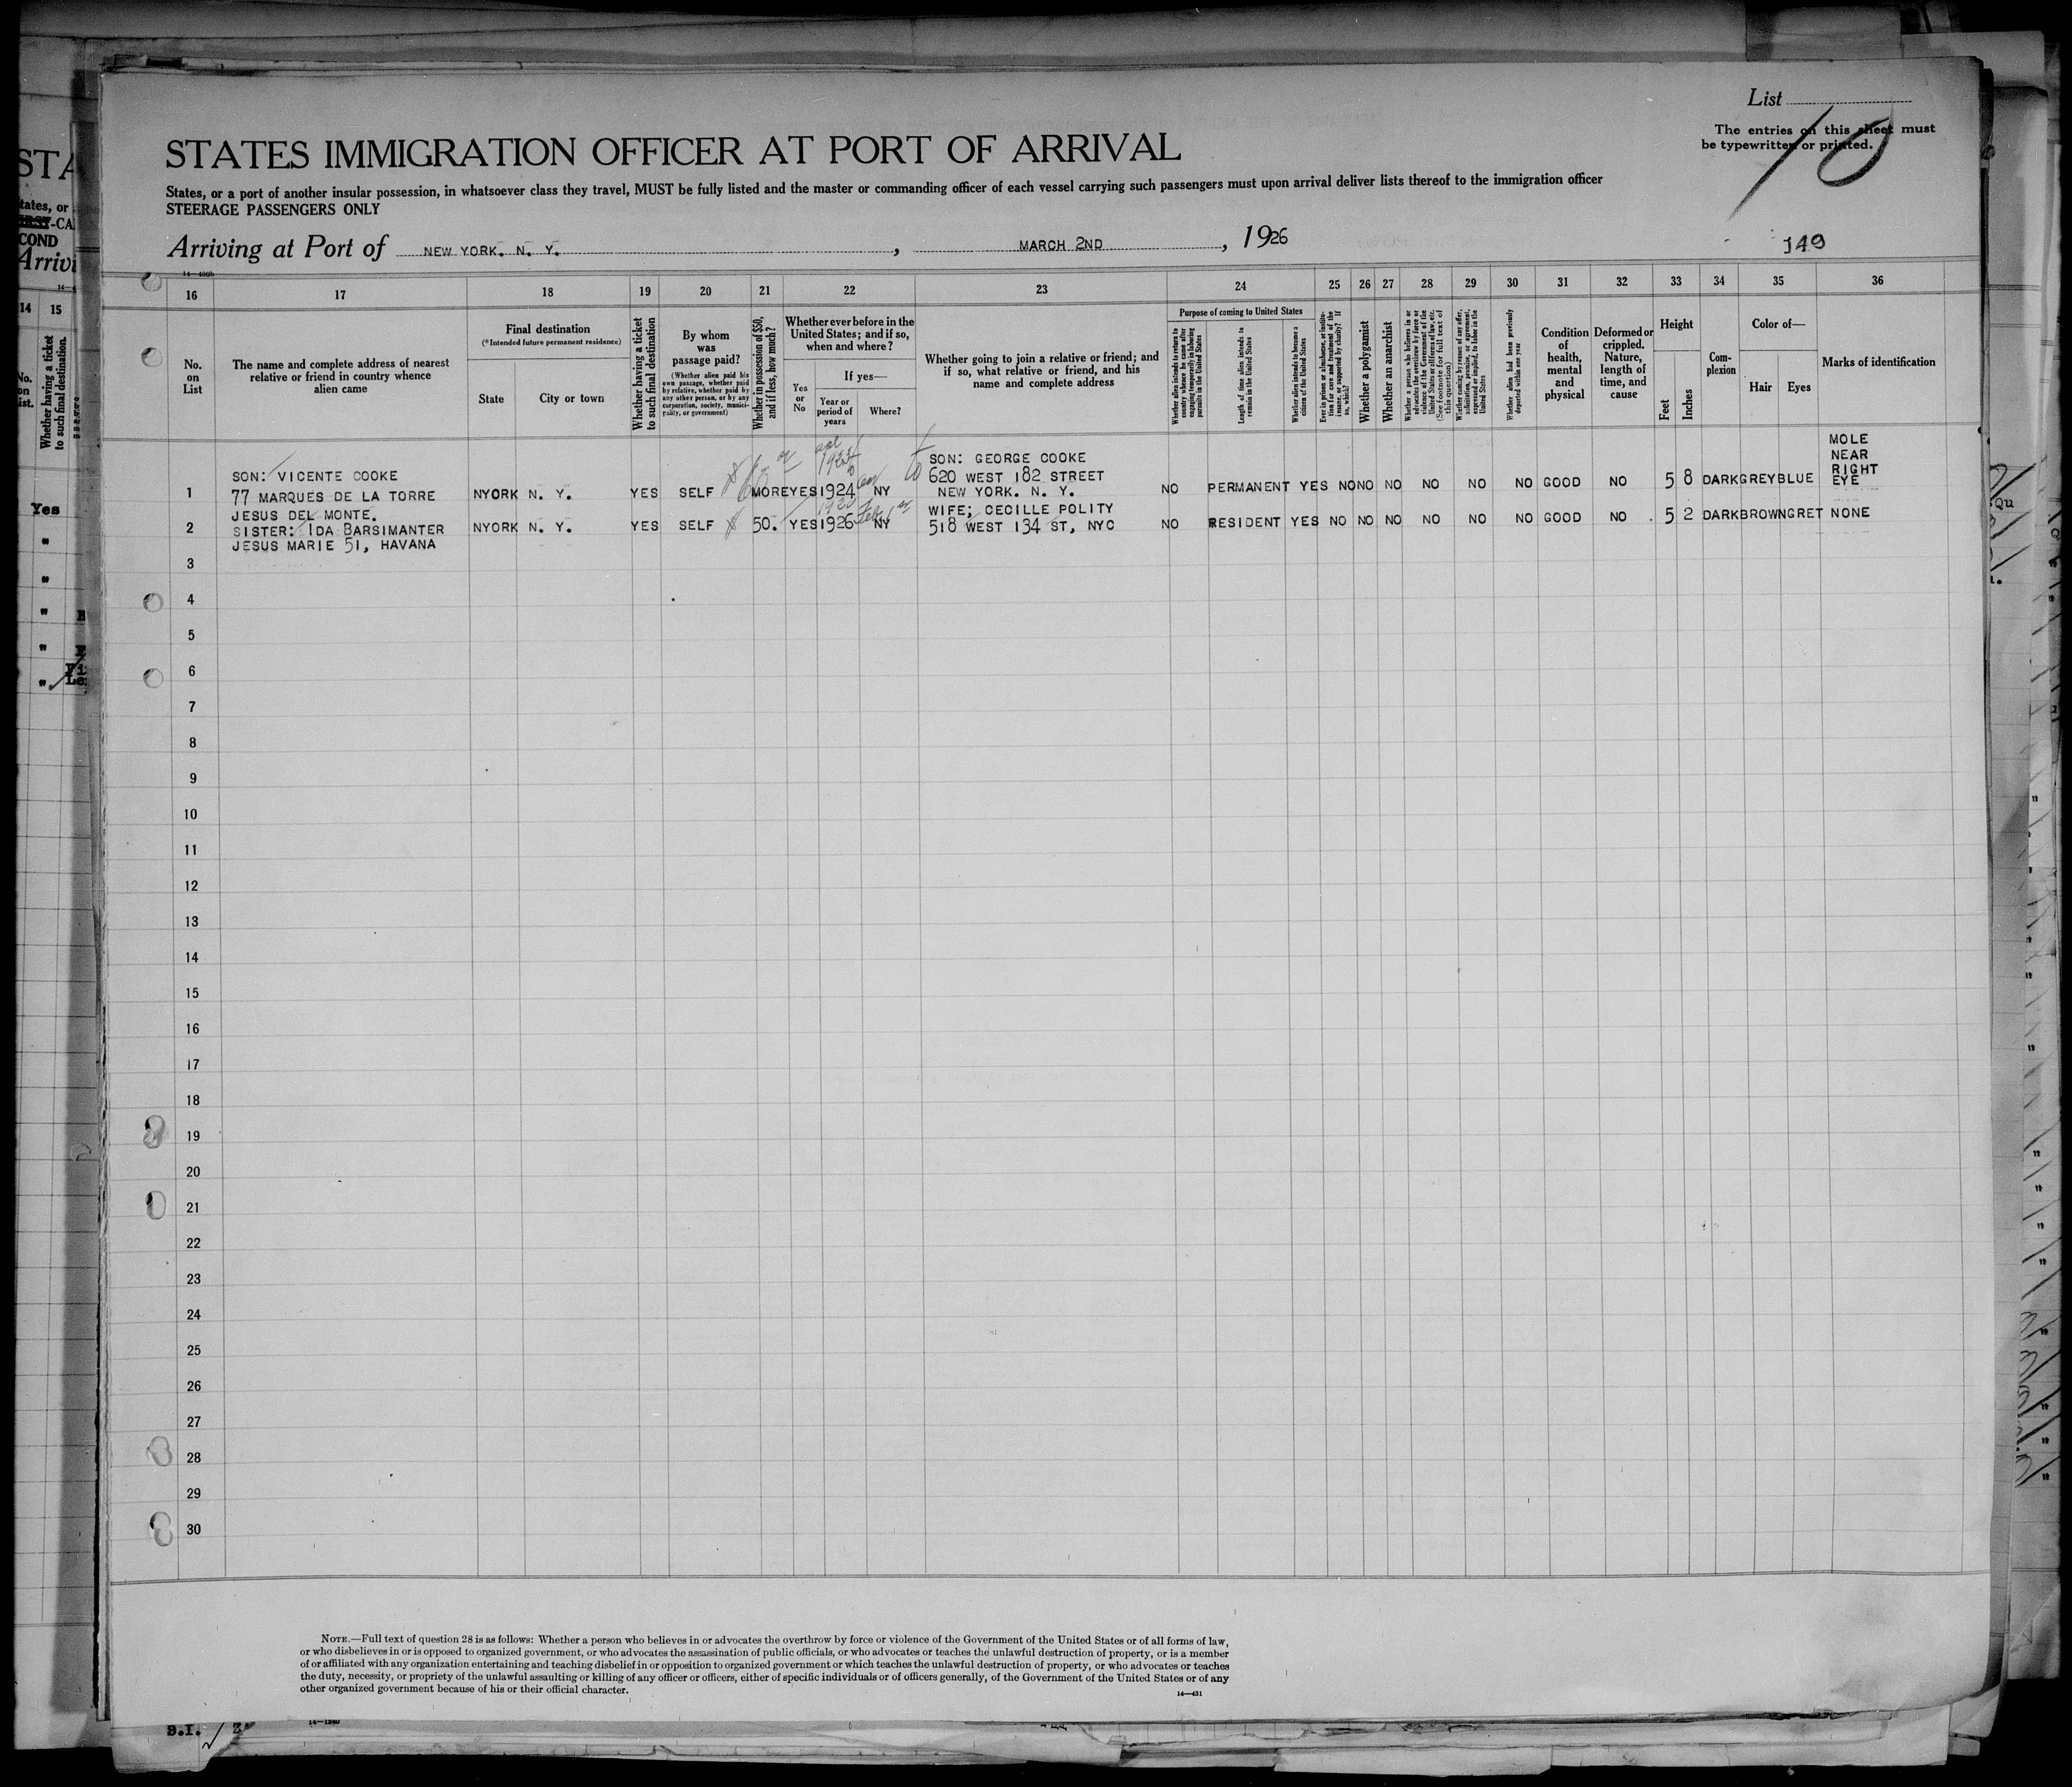 List
The entries on this sheet must
be typewritten or printed.
10
STATES IMMIGRATION OFFICER AT PORT OF ARRIVAL
States, or a port of another insular possession, in whatsoever class they travel, MUST be fully listed and the master or commanding officer of each vessel carrying such passengers must upon arrival deliver lists thereof to the immigration officer
STEERAGE PASSENGERS ONLY
Arriving at Port of NEW YORK. N. Y. , MARCH 2ND , 1926
149
16 17 18 19 20 21 22 23 24 25 26 27 28 29 30 31 32 33 34 35 36
No. on List
The name and complete address of nearest relative or friend in country whence alien came
Final destination
(*Intended future permanent residence)
State City or town
Whether having a ticket to such final destination
By whom was passage paid?
(Whether alien paid his own passage, whether paid by relative, whether paid by any other person, or by any corporation, society, municipality, or government)
Whether in possession of $50, and if less, how much?
Whether ever before in the United States; and if so, when and where?
Yes or No
If yes—
Year or period of years
Where?
Whether going to join a relative or friend; and if so, what relative or friend, and his name and complete address
Purpose of coming to United States
Whether alien intends to return to country whence he came after engaging temporarily in laboring pursuits in the United States
Length of time alien intends to remain in the United States
Whether alien intends to become a citizen of the United States
Whether a polygamist
Whether an anarchist
Whether alien had been previously deported within one year
Condition of health, mental and physical
Deformed or crippled. Nature, length of time, and cause
Height
Feet Inches
Complexion
Color of—
Hair Eyes
Marks of identification
1 SON: VICENTE COOKE
77 MARQUES DE LA TORRE
JESUS DEL MONTE.
NYORK N. Y. YES SELF MORE YES 1924 NY
SON: GEORGE COOKE
620 WEST 182 STREET
NEW YORK. N. Y.
NO PERMANENT YES NO NO NO NO NO NO GOOD NO 5 8 DARK GREY BLUE
MOLE
NEAR
RIGHT
EYE
2 SISTER: IDA BARSIMANTER
JESUS MARIE 51, HAVANA
NYORK N. Y. YES SELF $ 50. YES 1926 NY
WIFE; CECILLE POLITY
518 WEST 134 ST, NYC
NO RESIDENT YES NO NO NO NO NO NO GOOD NO 5 2 DARK BROWN GRET NONE
3
4
5
6
7
8
9
10
11
12
13
14
15
16
17
18
19
20
21
22
23
24
25
26
27
28
29
30
NOTE.—Full text of question 28 is as follows: Whether a person who believes in or advocates the overthrow by force or violence of the Government of the United States or of all forms of law,
or who disbelieves in or is opposed to organized government, or who advocates the assassination of public officials, or who advocates or teaches the unlawful destruction of property, or is a member
of or affiliated with any organization entertaining and teaching disbelief in or opposition to organized government or which teaches the unlawful destruction of property, or who advocates or teaches
the duty, necessity, or propriety of the unlawful assaulting or killing of any officer or officers, either of specific individuals or of officers generally, of the Government of the United States or of any
other organized government because of his or their official character.
14—431